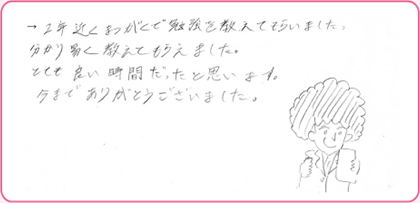 →2年近くまつがくで勉強を教えてもらいました。
分かり易く教えてもらえました。
とても良い時間だったと思います。
今までありがとうございました。